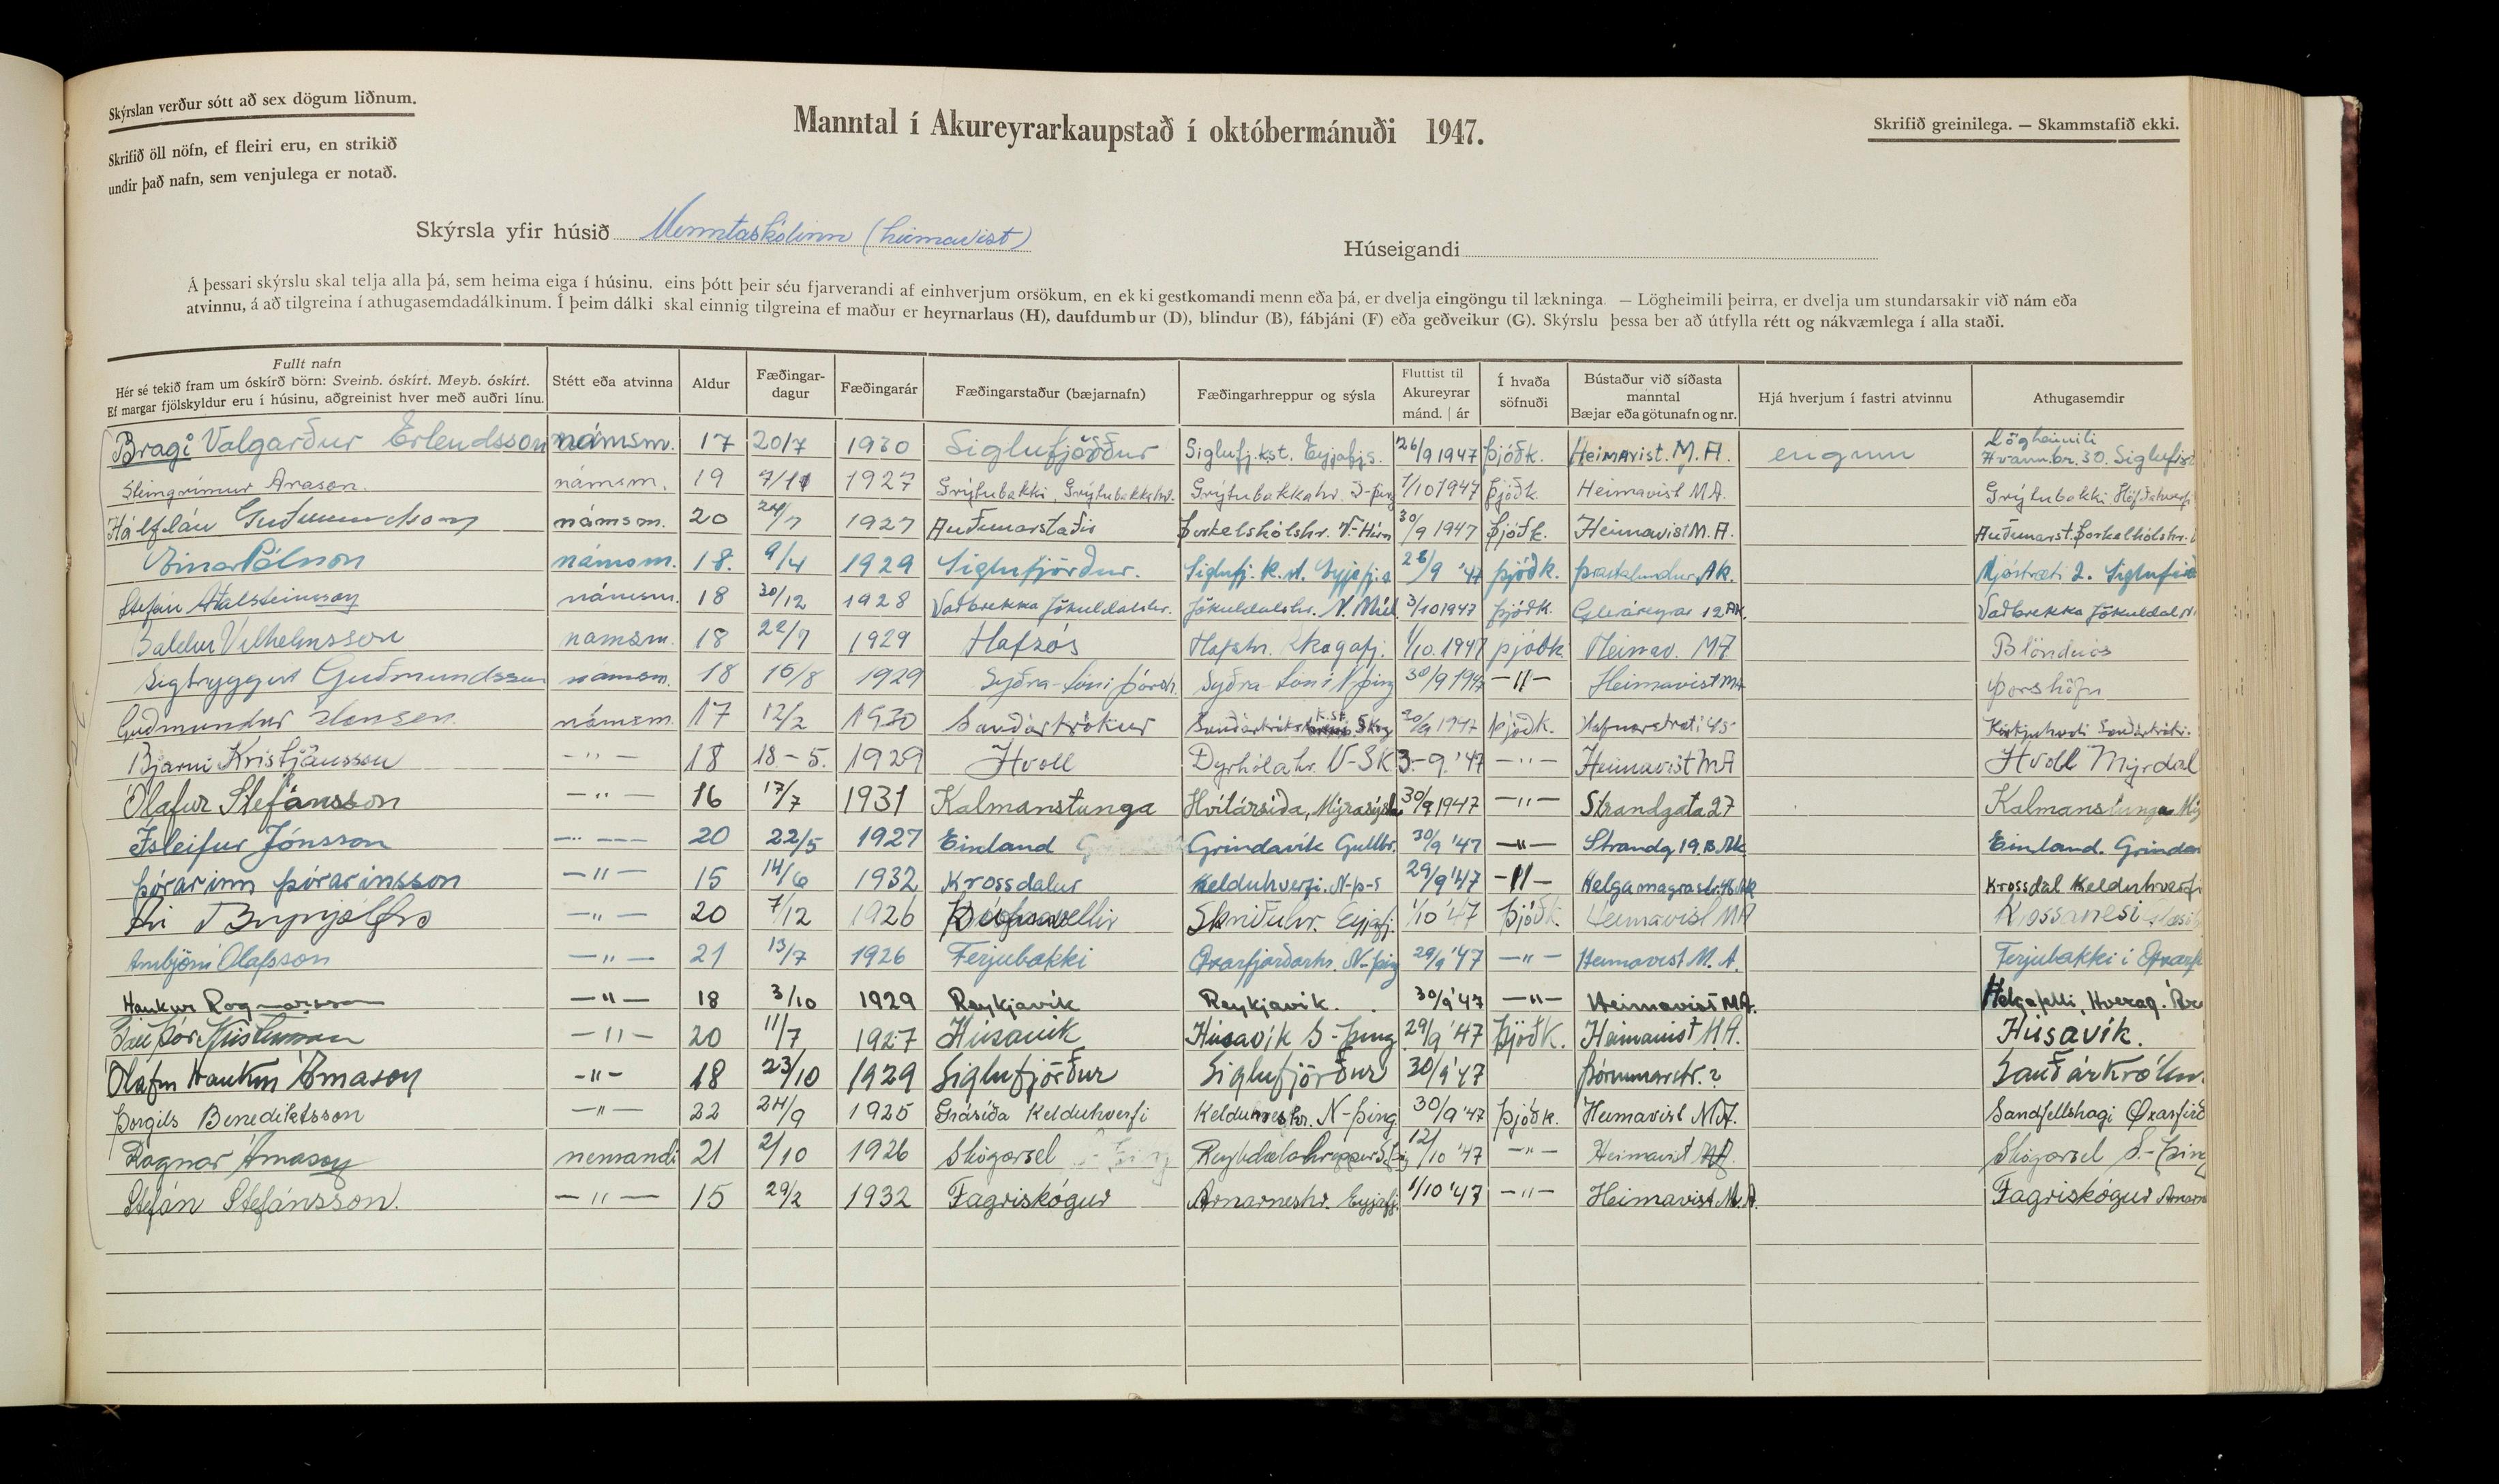 Skýrslan verður sótt að sex dögum liðnum.
Skrifið öll nöfn, ef fleiri eru, en strikið
undir það nafn, sem venjulega er notað.
Manntal í Akureyrarkaupstað í októbermánuði 1947.
Skrifið greinilega. — Skammstafið ekki.
Skýrsla yfir húsið Menntaskólinn (heimavist)
Húseigandi
Á þessari skýrslu skal telja alla þá, sem heima eiga í húsinu, eins þótt þeir séu fjarverandi af einhverjum orsökum, en ekki gestkomandi menn eða þá, er dvelja eingöngu til lækninga. — Lögheimili þeirra, er dvelja um stundarsakir við nám eða
atvinnu, á að tilgreina í athugasemdadálkinum. Í þeim dálki skal einnig tilgreina ef maður er heyrnarlaus (H), daufdumbur (D), blindur (B), fábjáni (F) eða geðveikur (G). Skýrslu þessa ber að útfylla rétt og nákvæmlega í alla staði.
Fullt nafn Hér sé tekið fram um óskírð börn: Sveinb. óskírt. Meyb. óskírt. Ef margar fjölskyldur eru í húsinu, aðgreinist hver með auðri línu. Stétt eða atvinna Aldur Fæðingar-dagur Fæðingarár Fæðingarstaður (bæjarnafn) Fæðingarhreppur og sýsla Fluttist til Akureyrar mánd. | ár Í hvaða söfnuði Bústaður við síðasta manntal Bæjar eða götunafn og nr. Hjá hverjum í fastri atvinnu Athugasemdir
Bragi Valgarður Erlendsson námsm. 17 20/7 1930 Siglufjörður Siglufj.kst. Eyjafj.s. 26/9 1947 þjóðk. Heimavist. M.A. engum Lögheimili Hvann.br. 30. Siglufirði
Steingrímur Arason. námsm. 19 7/11 1927 Grýtubakki, Grýtubakkahr. Grýtubakkahr. S-þing 1/10 1947 þjóðk. Heimavist MA. Grýtubakki Höfðahverfi
Hálfdán Guðmundsson námsm. 20 24/7 1927 Auðunarstaðir Þorkelshólshr. V-Hún 30/9 1947 þjóðk. Heimavist M.A. Auðunarst. Þorkelhólshr.
Einar Pálsson námsm. 18. 9/4 1929 Siglufjörður. Siglufj. k.st. Eyjafj.s 28/9 '47 þjóðk. Þrastalundur Ak. Mjóstræti 2. Siglufirð
Stefán Aðalsteinsson námsm. 18 30/12 1928 Vaðbrekka Jökuldalshr. Jökuldalshr. N. Múl. 3/10 1947 þjóðk. Gleráreyrar 12 Ak. Vaðbrekka Jökuldal N.
Baldur Vilhelmsson námsm. 18 22/7 1929 Hofsós Hofshr. Skagafj. 1/10. 1947 þjóðk. Heimav. MA Blönduós
Sigtryggur Guðmundsson námsm. 18 16/8 1929 Syðra-Lóni Þórsh. Syðra-Lóni N þing 30/9 1947 —"— Heimavist MA Þorshöfn
Guðmundur Hansen námsm. 17 12/2 1930 Sauðárkrókur Sauðárkróks k.st. Skag 30/9 1947 þjóðk. Hafnarstræti 45 Kirkjuhvoli Sauðárkróki.
Bjarni Kristjánsson —"— 18 18.-5. 1929 Hvoll Dyrhólahr. V-SK. 3.-9. '47 —"— Heimavist MA Hvoll Mýrdal
Ólafur Stefánsson —"— 16 17/7 1931 Kalmanstunga Hvítársíða, Mýrasýsla 30/9 1947 —"— Strandgata 27 Kalmanstunga Mý
Ísleifur Jónsson —"— 20 22/5 1927 Einland Grindavík Gullbr. 30/9 '47 —"— Strandg 19. B. Ak Einland. Grindav
Þórarinn Þórarinsson —"— 15 14/6 1932 Krossdalur Kelduhverfi. N-þ-s 29/9 '47 —"— Helgamagrastr. 46 Ak Krossdal Kelduhverfi
Ari Brynjólfss —"— 20 7/12 1926 Skriðuhr. Eyjafj. 1/10 '47 þjóðk. Heimavist MA Krossanesi
Arnbjörn Ólafsson —"— 21 13/7 1926 Ferjubakki Öxarfjarðarhr. N-þing 29/9 '47 —"— Heimavist M.A. Ferjubakki í Öxarf
Haukur Ragnarsson —"— 18 3/10 1929 Reykjavík Reykjavík. 30/9 '47 —"— Heimavist M.A. Helgafelli, Hverag.
Páll Þór Kristinsson —"— 20 11/7 1927 Húsavík Húsavík S-þing 29/9 '47 Þjóðk. Heimavist M.A. Húsavík.
Ólafur Haukur Árnason —"— 18 23/10 1929 Siglufjörður Siglufjörður 30/9 '47 Þórunnarstr. ? Sauðárkrókur
Þorgils Benediktsson —"— 22 24/9 1925 Grásíða Kelduhverfi Kelduneshr. N-þing. 30/9 '47 Þjóðk. Heimavist M.A. Sandfellshagi Öxarfirð
Ragnar Árnason nemandi 21 2/10 1926 Skógarsel Reykdælahreppur S-þing 12/10 '47 —"— Heimavist MA. Skógarsel S.-Þing
Stefán Stefánsson. —"— 15 29/2 1932 Fagriskógur Arnarneshr. Eyjafj. 1/10 '47 —"— Heimavist M.A. Fagriskógur Arnarn